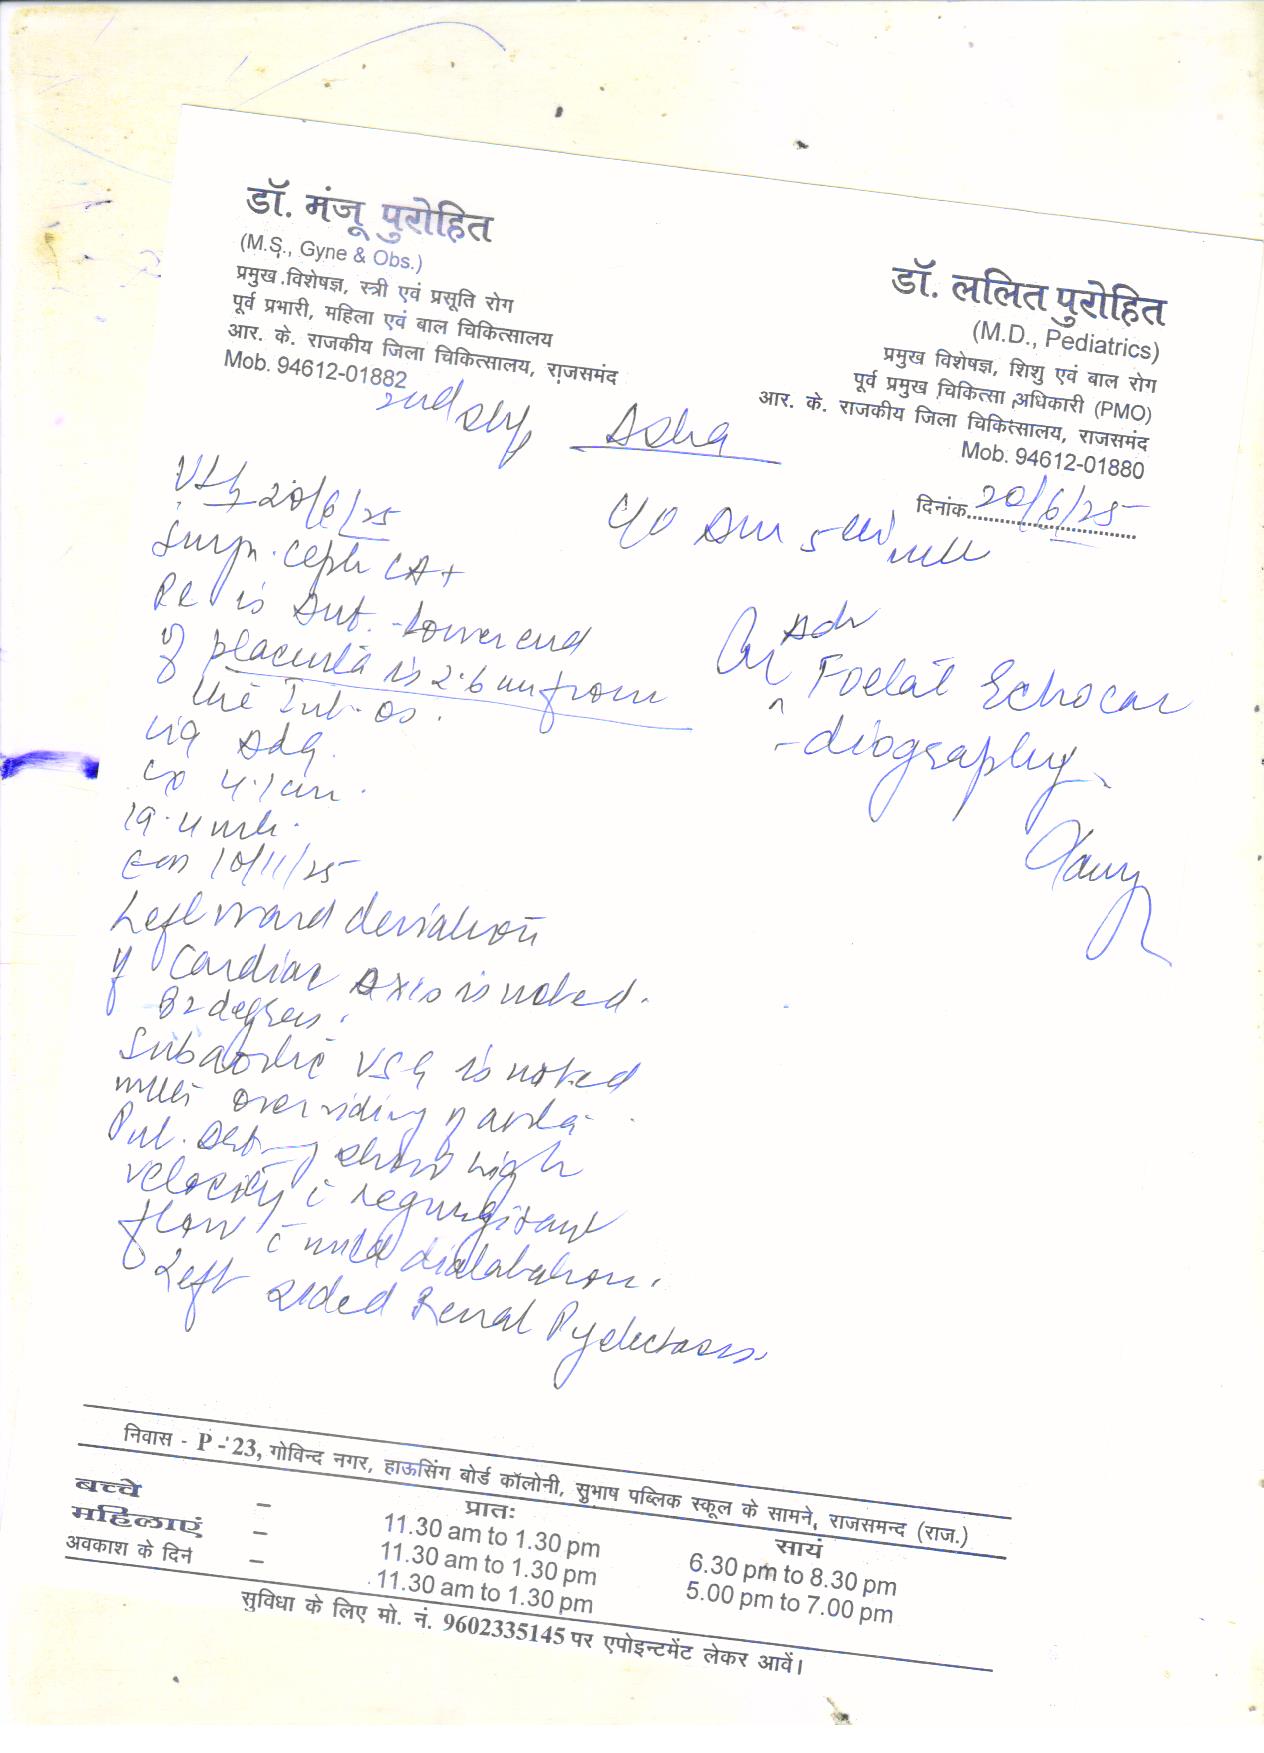 डॉ. मंजू पुरोहित
(M.S., Gyne & Obs.)
प्रमुख विशेषज्ञ, स्त्री एवं प्रसूति रोग
पूर्व प्रभारी, महिला एवं बाल चिकित्सालय
आर. के. राजकीय जिला चिकित्सालय, राजसमंद
Mob. 94612-01882
डॉ. ललित पुरोहित
(M.D., Pediatrics)
प्रमुख विशेषज्ञ, शिशु एवं बाल रोग
पूर्व प्रमुख चिकित्सा अधिकारी (PMO)
आर. के. राजकीय जिला चिकित्सालय, राजसमंद
Mob. 94612-01880
दिनांक 20/6/25
Asha
20/6/25
is Ant. Lower end
of placenta is 2.6 cm from
the Int. os.
4.1 cm.
19.4
10/11/25
Left ward deviation
of Cardiac Axis is noted.
82 degrees.
Subaortic is noted
with overriding of aorta.
Pul. show high
velocity c regurgitant
flow c mild
Left sided Renal
Adv
Foetal Echocar
-diography
निवास - P - 23, गोविन्द नगर, हाऊसिंग बोर्ड कॉलोनी, सुभाष पब्लिक स्कूल के सामने, राजसमन्द (राज.)
प्रातः सायं
बच्चे - 11.30 am to 1.30 pm 6.30 pm to 8.30 pm
महिलाएं - 11.30 am to 1.30 pm 5.00 pm to 7.00 pm
अवकाश के दिन - 11.30 am to 1.30 pm
सुविधा के लिए मो. नं. 9602335145 पर एपोइन्टमेंट लेकर आवें।